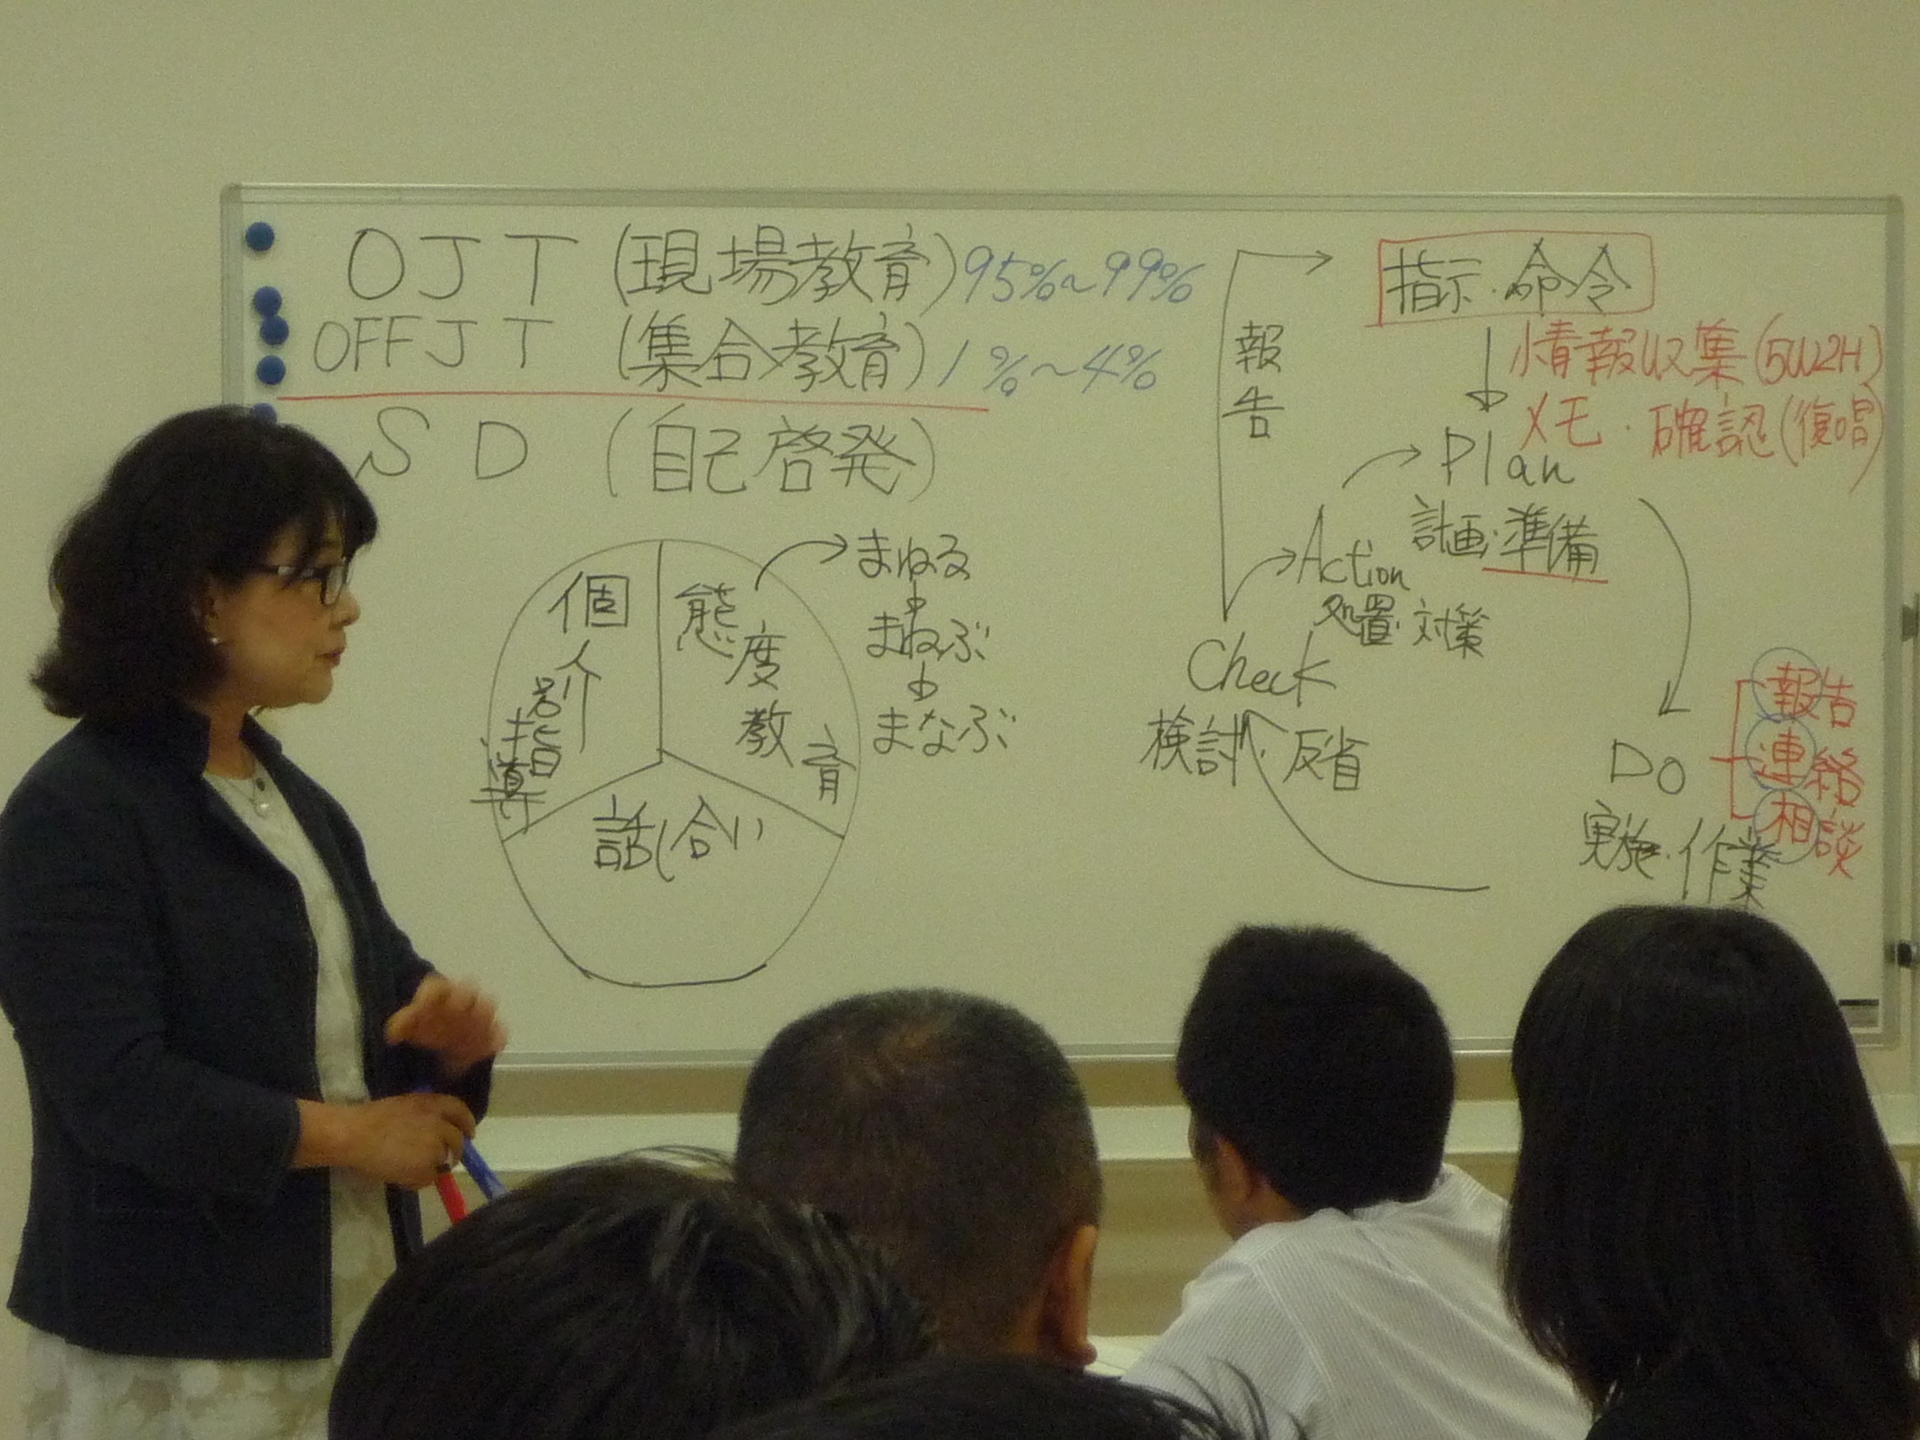 OJT (現場教育) 95%~99%
OFFJT (集合教育) 1%~4%
SD (自己啓発)
個別指導
態度教育
話し合い
まねる
まねぶ
まなぶ
報告
指示・命令
情報収集(5W2H)
メモ・確認(復唱)
Plan
計画・準備
Action
処置・対策
Check
検討・反省
DO
実施・作業
報告
連絡
相談